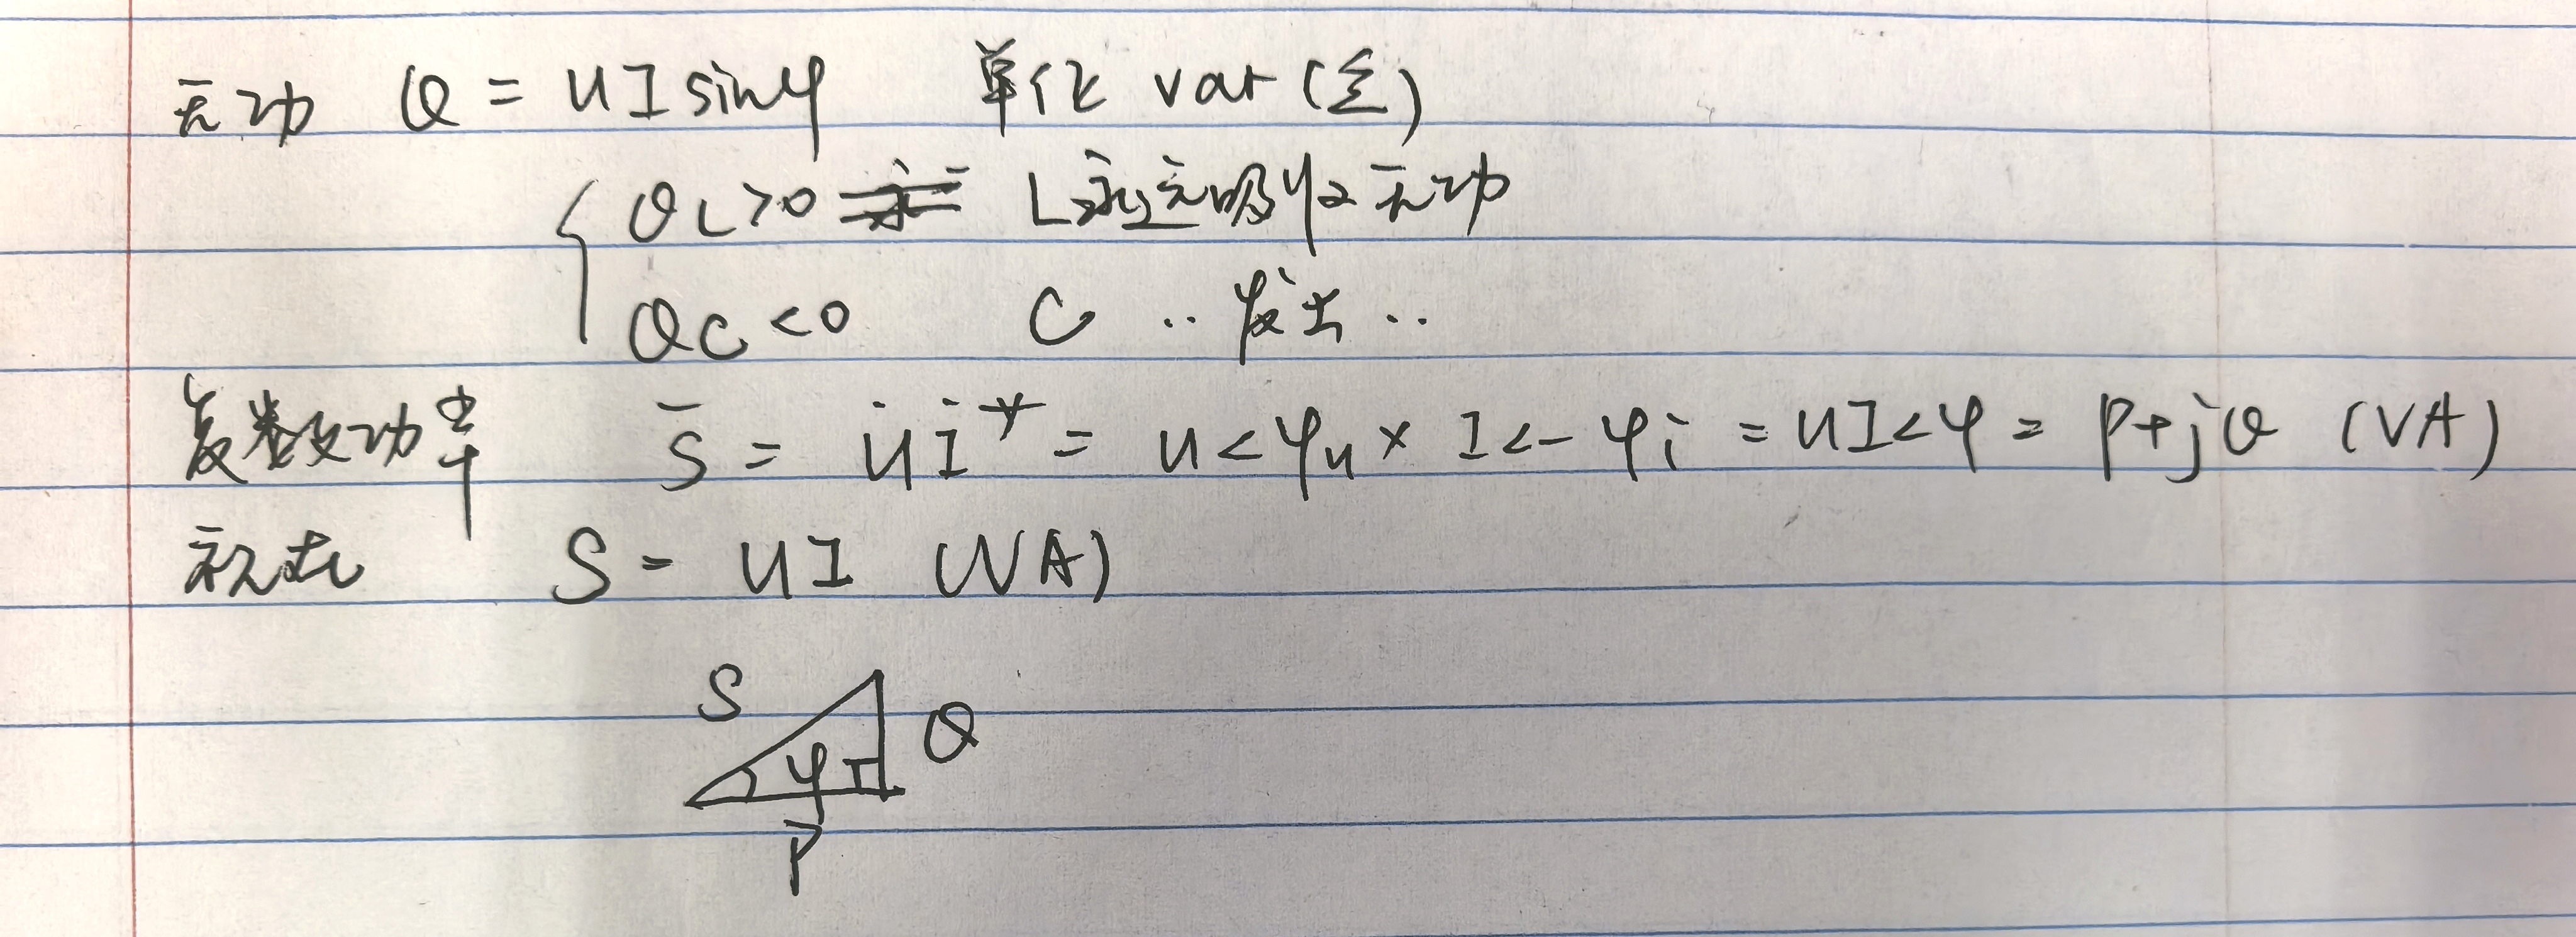 无功 Q = UI sinφ 单位 var (乏)
QL>0 L永远吸收无功
QC<0 C ‥发出‥
复数功率 S̄ = U̇İ* = U∠φu × I∠-φi = UI∠φ = P+jQ (VA)
视在 S = UI (VA)
S
φ Q
P